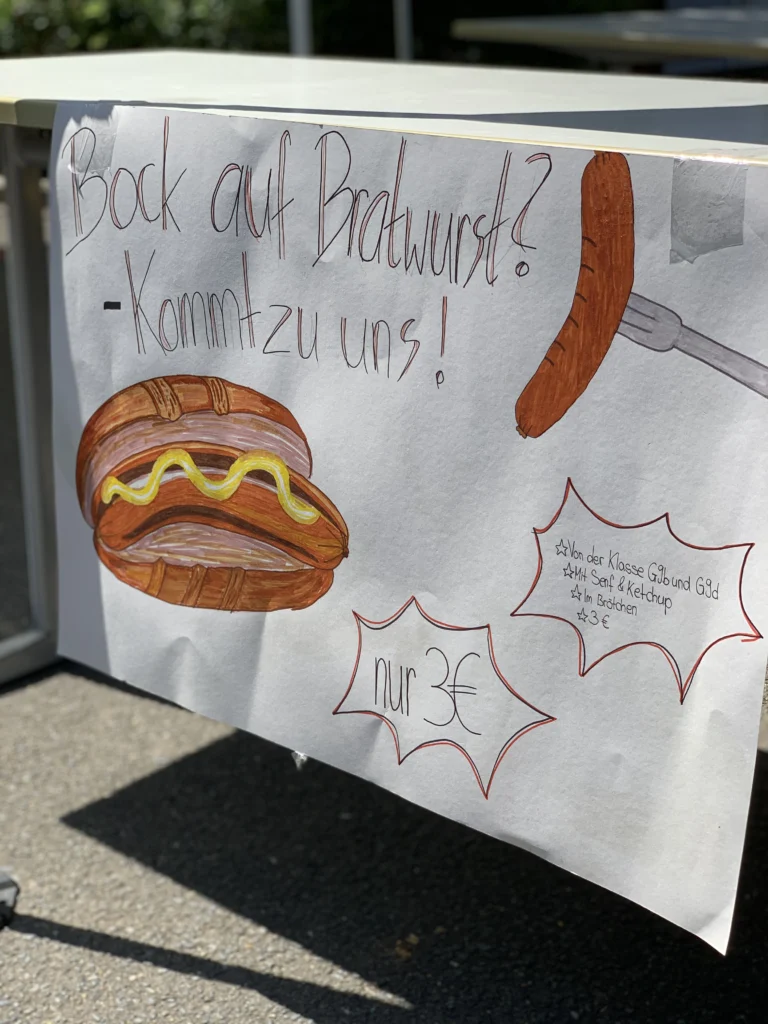 Bock auf Bratwurst?
-Kommt zu uns!
☆Von der Klasse G9b und G9d
☆Mit Senf & Ketchup
☆Im Brötchen
☆3€
nur 3€